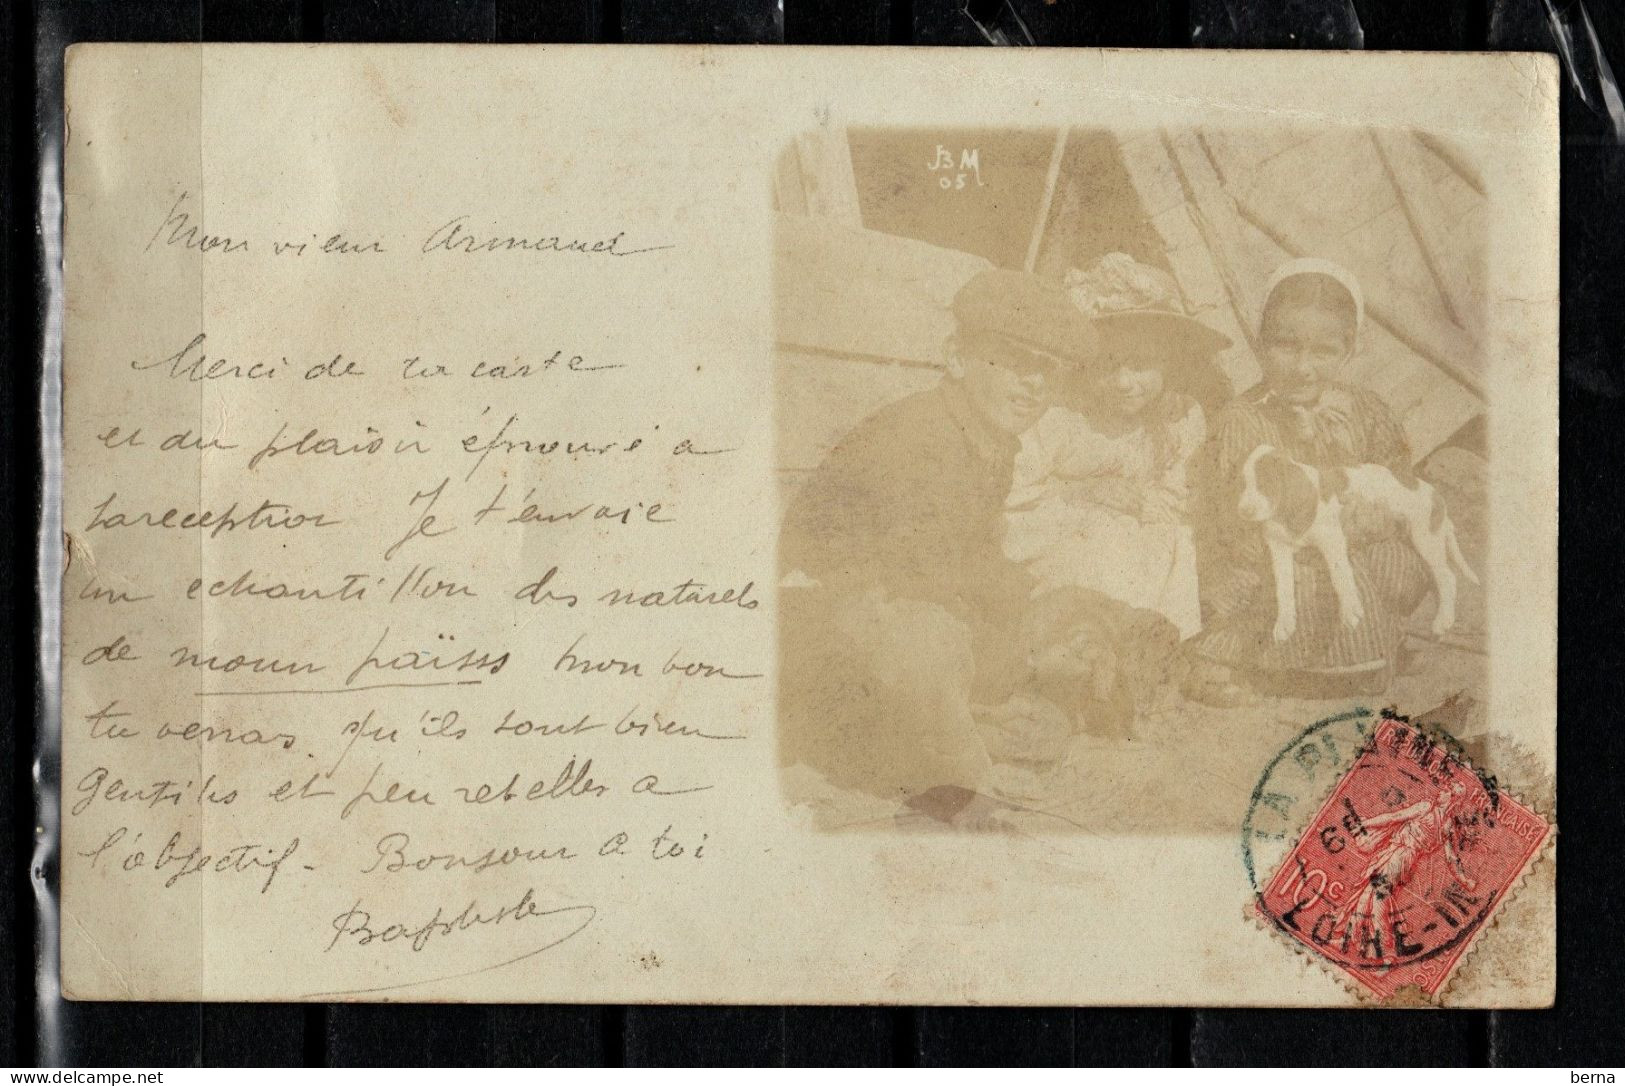 Mon vieux Armand
Merci de ta carte
et du plaisir éprouvé a
sa reception Je t'envoie
un echantillon des naturels
de moun païsss mon bon
tu verras qu'ils sont bien
gentils et peu rebelles a
l'objectif - Bonjour a toi
Baptiste
JBM
05
REPUBLIQUE FRANÇAISE
10c
LOIRE-IN
berna